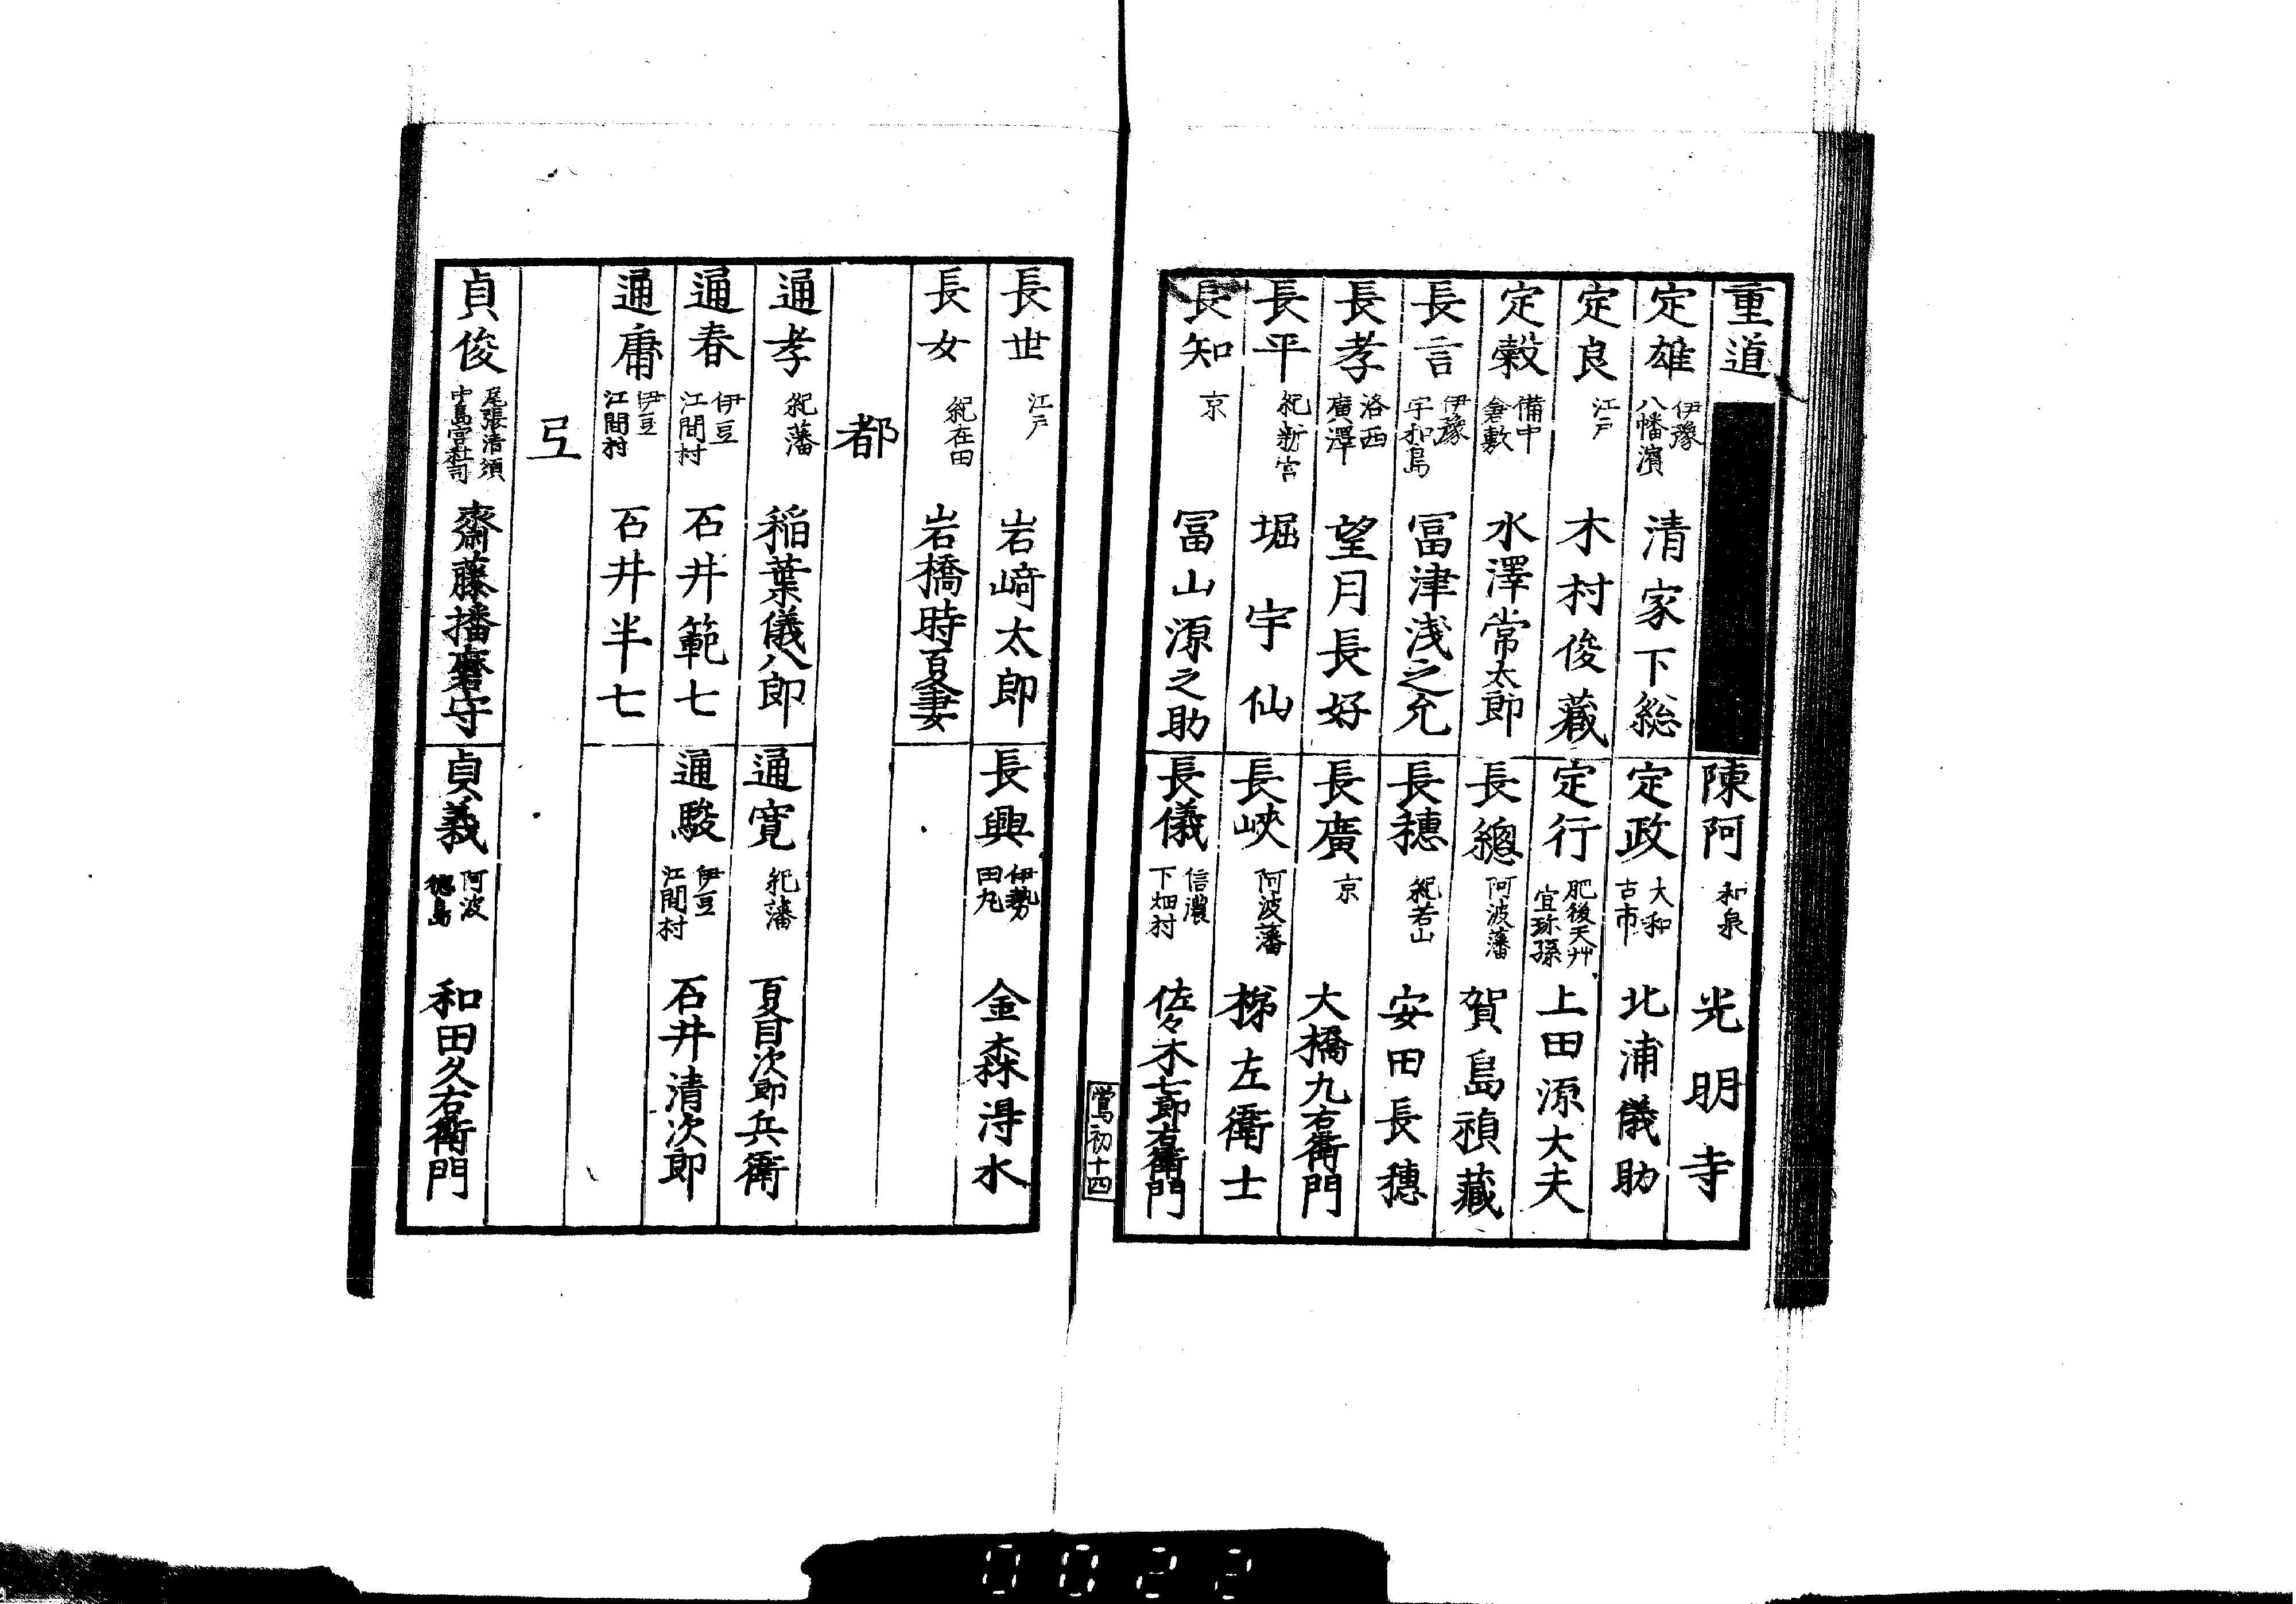 重道
陳阿 和泉 光明寺
定雄 伊豫八幡濱 清家下総
定政 大和古市 北浦儀助
定良 江戸 木村俊藏
定行 肥後天艸宜珎孫 上田源大夫
定穀 備中倉敷 水澤常太郎
長總 阿波藩 賀島禎藏
長言 伊豫宇和島 冨津浅之允
長穗 紀若山 安田長穗
長孝 洛西廣澤 望月長好
長廣 京 大橋九右衛門
長平 紀新宮 堀宇仙
長峽 阿波藩 梯左衛士
長知 京 冨山源之助
長儀 信濃下畑村 佐々木七郎右衛門
鴬初十四
長世 江戸 岩﨑太郎
長興 伊勢田丸 金森淂水
長女 紀在田 岩橋時夏妻
都
通孝 紀藩 稲葉儀八郎
通寛 紀藩 夏目次郎兵衛
通春 伊豆江間村 石井範七
通駿 伊豆江間村 石井清次郎
通庸 伊豆江間村 石井半七
弖
貞俊 尾張清須中島宮社司 齋藤播磨守
貞義 阿波徳島 和田久右衛門
0022